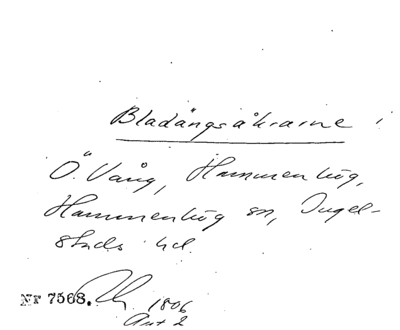 Bladängsåkrarne i
Ö. Vång, Hammenhög,
Hammenhög sn, Ingel-
stads hd.
Nr 7568. 1806
Ant 2